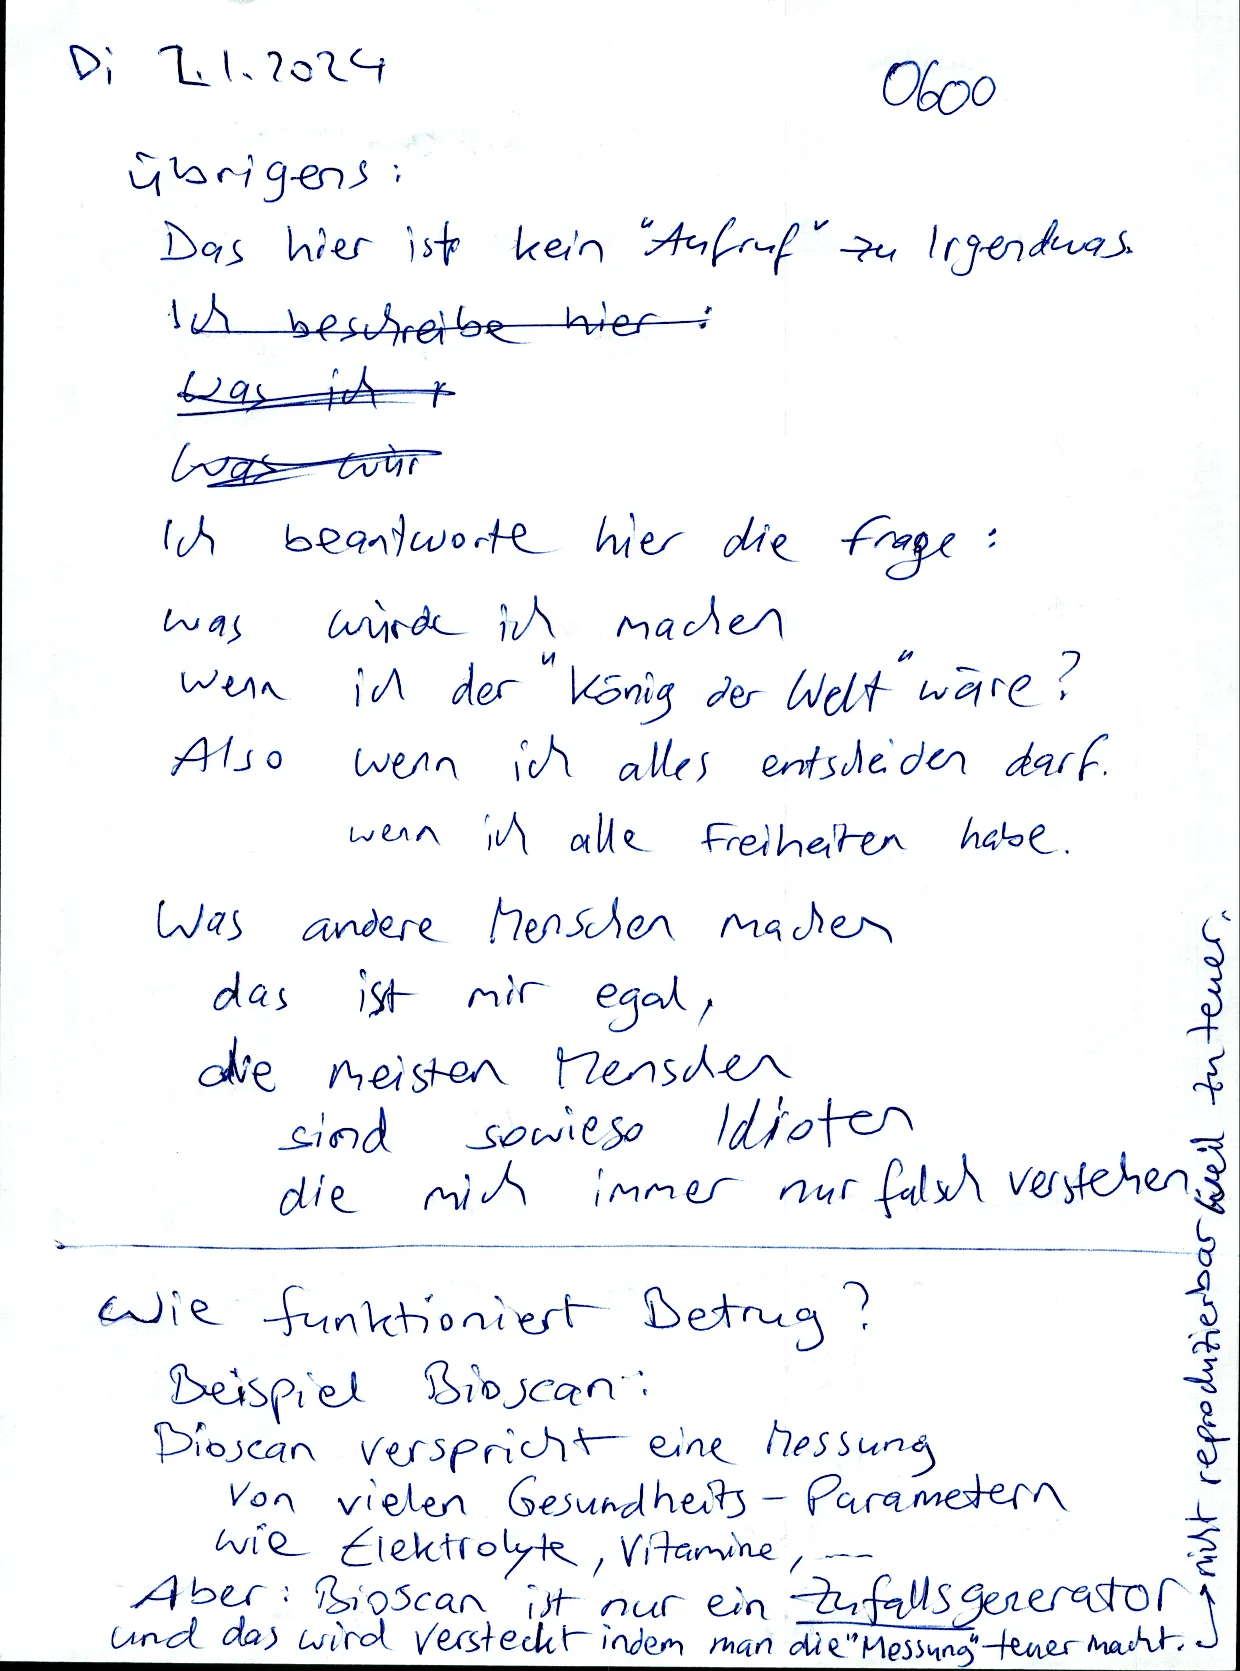 Di 2.1.2024
0600
übrigens:
Das hier ist kein "Aufruf" zu Irgendwas.
Ich beschreibe hier:
Was ich
Was wür
Ich beantworte hier die Frage:
was würde ich machen
wenn ich der "König der Welt" wäre?
Also wenn ich alles entscheiden darf.
wenn ich alle Freiheiten habe.
Was andere Menschen machen
das ist mir egal,
die meisten Menschen
sind sowieso Idioten
die mich immer nur falsch verstehen
Wie funktioniert Betrug?
Beispiel Bioscan:
Bioscan verspricht eine Messung
von vielen Gesundheits-Parametern
wie Elektrolyte, Vitamine, ...
Aber: Bioscan ist nur ein Zufallsgenerator
und das wird versteckt indem man die "Messung" teuer macht.
→ nicht reproduzierbar weil zu teuer.